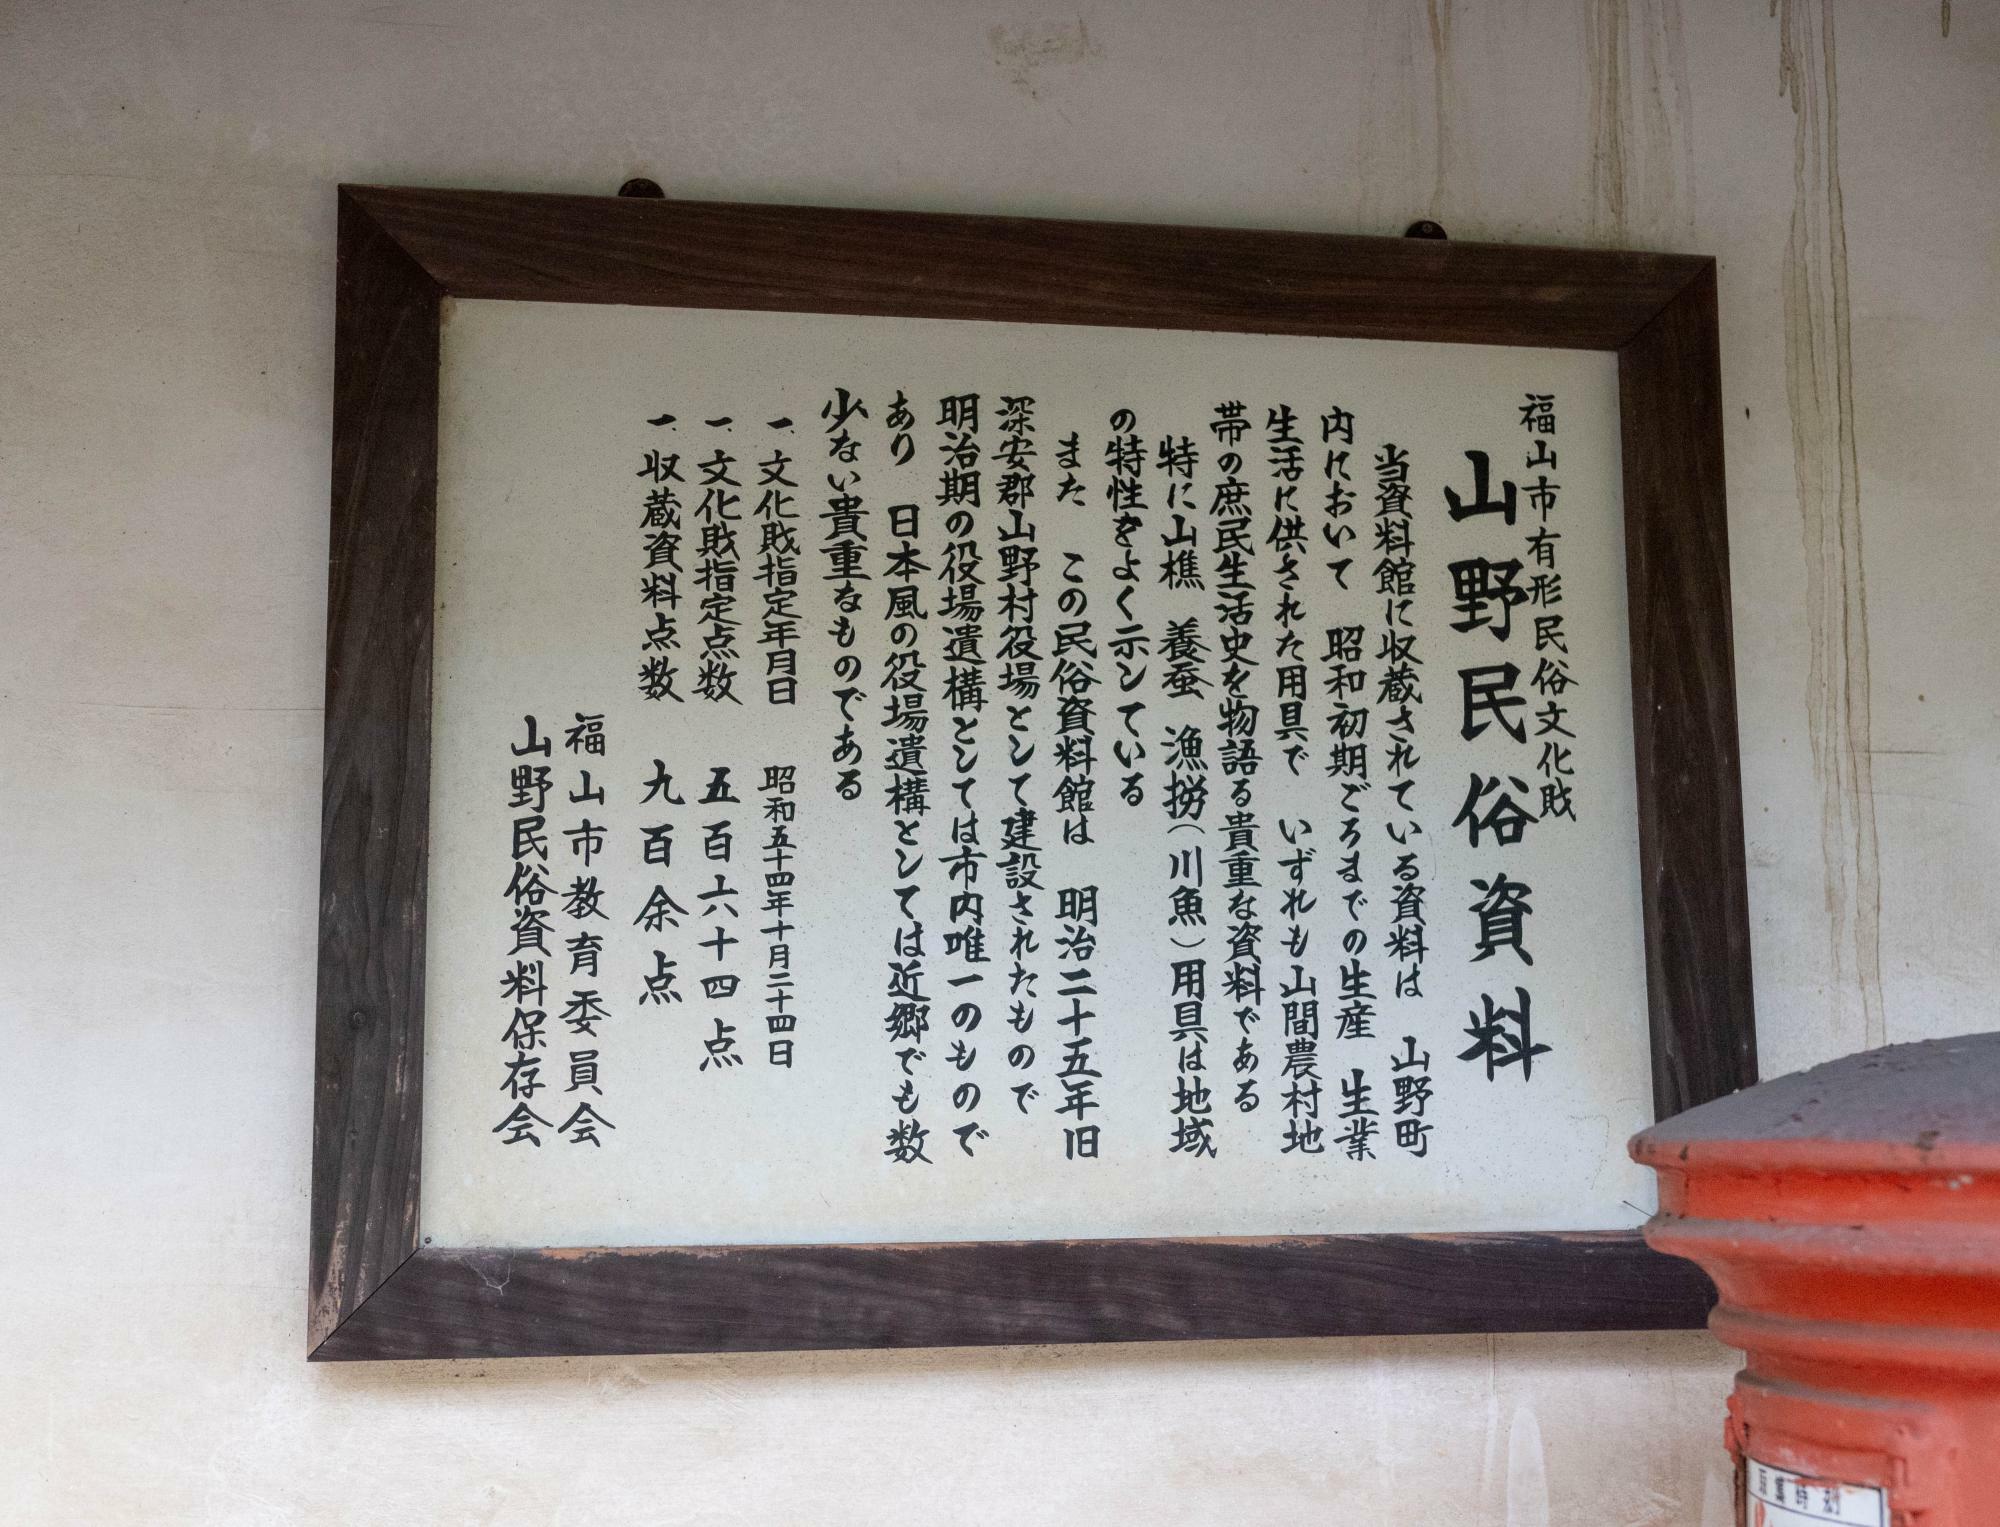 福山市有形民俗文化財
山野民俗資料
当資料館に収蔵されている資料は　山野町
内において　昭和初期ごろまでの生産　生業
生活に供された用具で　いずれも山間農村地
帯の庶民生活史を物語る貴重な資料である
特に山樵　養蚕　漁撈（川魚）用具は地域
の特性をよく示している
また　この民俗資料館は　明治二十五年旧
深安郡山野村役場として建設されたもので
明治期の役場遺構としては市内唯一のもので
あり　日本風の役場遺構としては近郷でも数
少ない貴重なものである
一、文化財指定年月日　昭和五十四年十月二十四日
一、文化財指定点数　五百六十四点
一、収蔵資料点数　九百余点
福山市教育委員会
山野民俗資料保存会